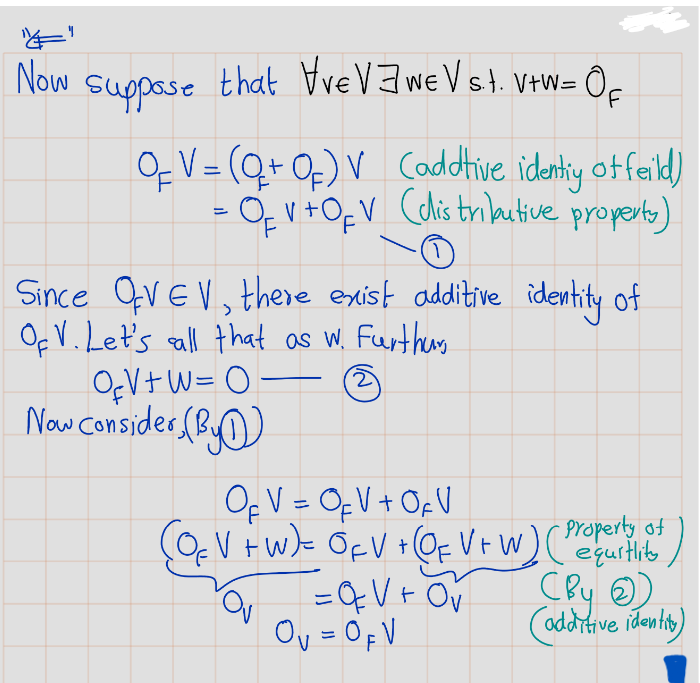 "⇐"
Now suppose that ∀v∈V ∃ w∈V s.t. v+w= O_F
O_F V = (O_F + O_F) V (addtive identiy of feild)
= O_F V + O_F V (distributive property)
①
Since O_F V ∈ V, there exist additive identity of
O_F V. Let's call that as w. Furthur,
O_F V + W = O — ②
Now consider, (By ①)
O_F V = O_F V + O_F V
(O_F V + W) = O_F V + (O_F V + W) (property of
equality)
O_V = O_F V + O_V (By ②)
O_V = O_F V (additive identity)